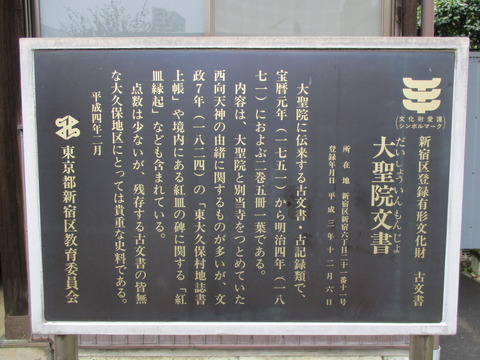 文化財愛護
シンボルマーク
新宿区登録有形文化財　古文書
だいしょういんもんじょ
大聖院文書
所在地　新宿区新宿六丁目二十一番十一号
登録年月日　平成三年十二月六日
大聖院に伝来する古文書・古記録類で、
宝暦元年（一七五一）から明治四年（一八
七一）におよぶ二巻五冊一葉である。
内容は、大聖院と別当寺をつとめていた
西向天神の由緒に関するものが多いが、文
政７年（一八二四）の「東大久保村地誌書
上帳」や境内にある紅皿の碑に関する「紅
皿縁起」なども含まれている。
点数は少ないが、残存する古文書の皆無
な大久保地区にとっては貴重な史料である。
平成四年二月
東京都新宿区教育委員会